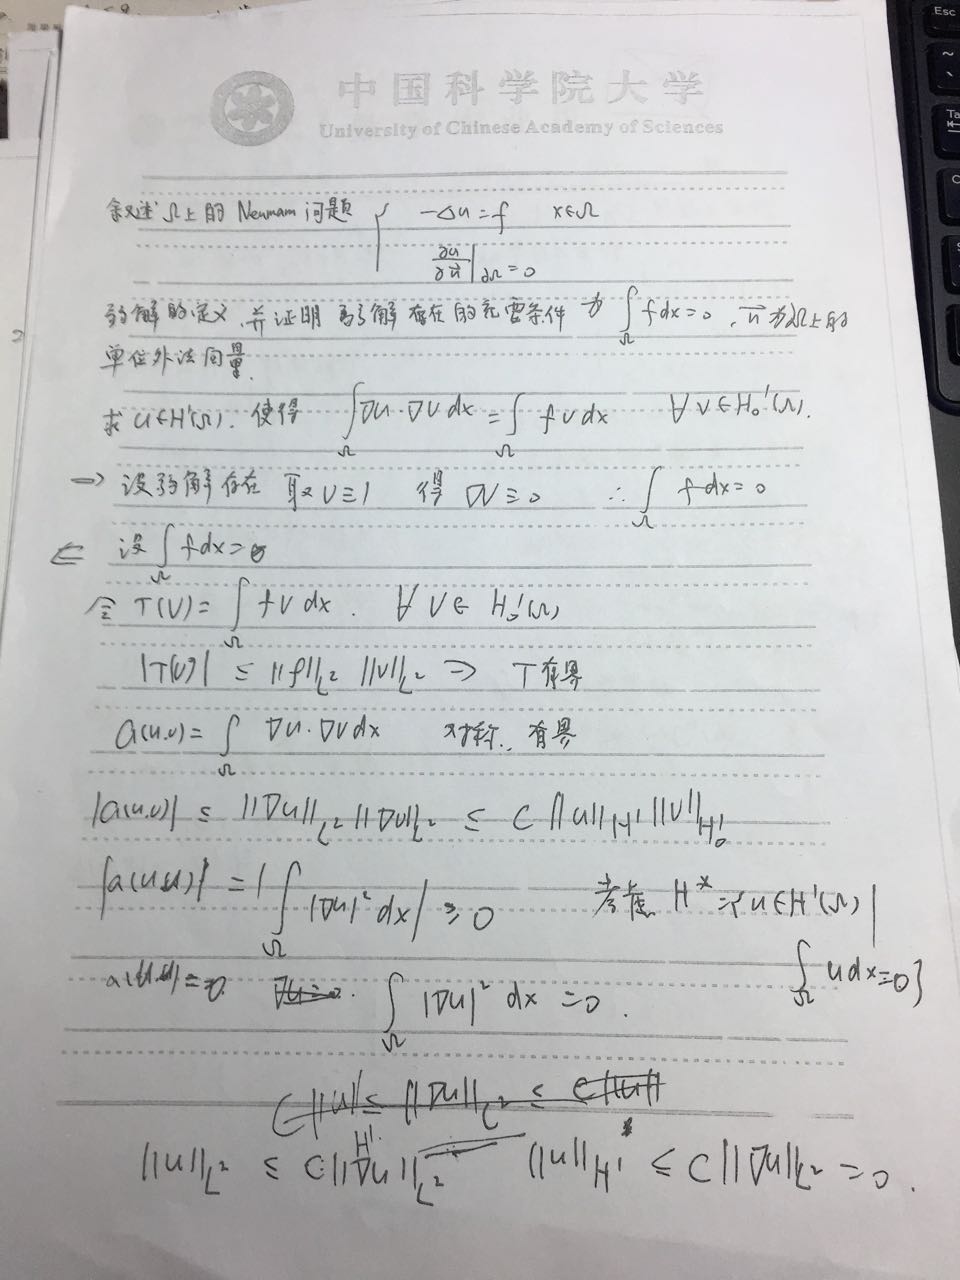 中国科学院大学
University of Chinese Academy of Sciences
叙述 Ω上的 Neumam 问题 { -Δu = f x∈Ω
∂u/∂n⃗ |∂Ω = 0
弱解的定义, 并证明弱解存在的充要条件为 ∫_Ω f dx = 0, n⃗ 为∂Ω上的
单位外法向量.
求 u∈H¹(Ω). 使得 ∫_Ω ∇u·∇v dx = ∫_Ω f v dx ∀ v∈H₀¹(Ω).
→ 设弱解存在 取 v≡1 得 ∇v≡0 ∴ ∫_Ω f dx = 0
⇐ 设 ∫_Ω f dx = 0
令 T(v) = ∫_Ω f v dx. ∀ v∈ H₀¹(Ω)
|T(v)| ≤ ||f||_L² ||v||_L² ⇒ T有界
a(u,v) = ∫_Ω ∇u·∇v dx 对称, 有界
|a(u,v)| ≤ ||∇u||_L² ||∇v||_L² ≤ C ||u||_H¹ ||v||_H₀¹
|a(u,u)| = | ∫_Ω |∇u|² dx | ≥ 0 考虑 H* = {u∈H¹(Ω) |
∫_Ω u dx = 0}
a(u,u) = 0. ∇u=0. ∫_Ω |∇u|² dx = 0.
C||u||_H¹ ≤ ||∇u||_L² ≤ C||u||
||u||_L² ≤ C||∇u||_L² ||u||_H¹ ≤ C||∇u||_L² = 0.